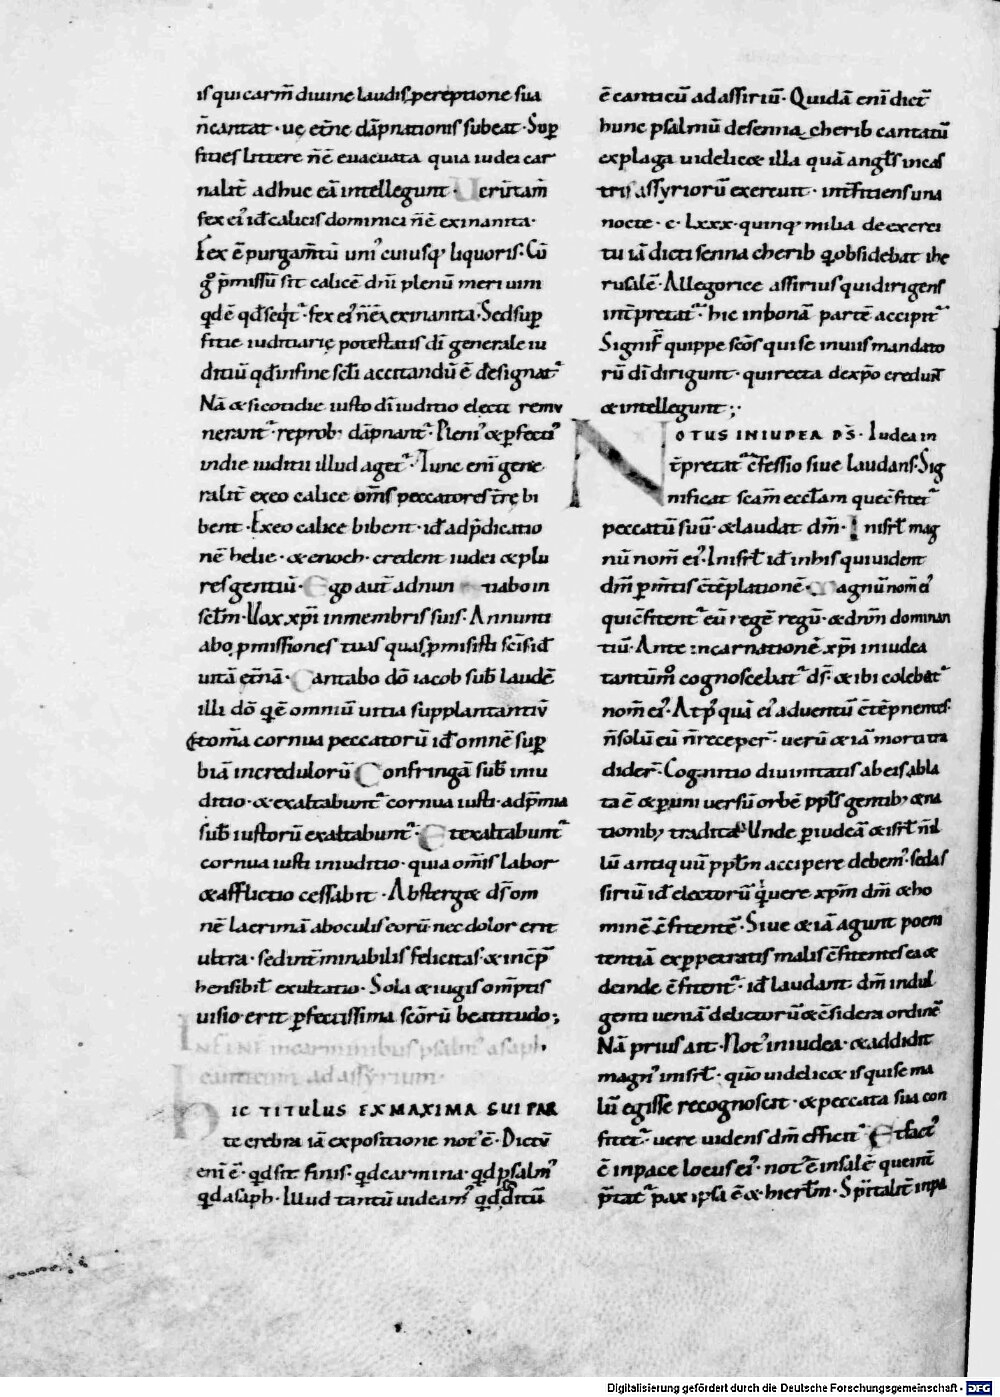 is qui carm̄ diuine laudis pereptione sua
n̄ cantat · uę et̄ne dāpnationis subeat · Sup̄
fities littere n̄ ē euacuata quia iudei car
nalit̄ adhuc eā intellegunt · Uerūtam̄
fex ei᾽ id calicis dominici n̄ ē exinanita ·
Fex ē purgam̄tū uni᾽ cuiusq᾽ liquoris · Cū
g̊ p̄missū sit calicē dn̄i plenū meri uini
qd ē qd seqt᾽ · fex ei᾽ n̄ ē exinanita · Sed sup̄
fitie iuditiarię potestatis dī generale iu
ditiū qd in fine sc̄li accitandū ē designat᾽
Nā & si cotidie iusto dī iuditio electi remu
nerant᾽ · reprobi dāpnant᾽ · Pleni᾽ & p̄fecti᾽
in die iuditii illud aget᾽ · Tunc enī gene
ralit̄ ex eo calice om̄s peccatores t̄rę bi
bent · Ex eo calice bibent · id ad p̄dicatio
nē helie · & enoch · credent iudei & plu
res gentiū · Ego aut̄ adnuntiabo in
sc̄lm · Uox xp̄i in membris suis · Annunti
abo p̄missiones tuas quas p̄misisti sc̄is id
uitā et̄nā · Cantabo dō iacob sub laudē
illi dō q̄ ē omniū uitia supplantantiū
Et om̄a cornua peccatorū id omnē sup̄
biā incredulorū Confringā sub iniu
ditio · & exaltabunt᾽ cornua iusti · ad p̄mia
sub iustorū exaltabunt᾽ · Et exaltabunt᾽
cornua iusti in iuditio · quia om̄is labor
& afflictio cessabit · Absterg& ds̄ om
nē lacrimā ab oculis eorū · nec dolor erit
ultra · sed int̄minabilis felicitas · & incēp̄
hensibil exultatio · Sola & iugis om̄ptis
uisio erit p̄fectissima sc̄orū beatitudo ;
IN FINE in carminibus psalm᾽ asaph
canticum ad assyrium ·
HIC TITULUS EX MAXIMA SUI PAR
te crebra iā expositione not᾽ ē · Dictū
enī ē · qd sit finis · qd carmina · qd psalm᾽
qd asaph · Illud tantū uideam᾽ qd ditū
ē canticū ad assiriū · Quidā enī dict̄
hunc psalmū de senna cherib cantatū
ex plaga uidelic& illa quā angl̄s in cas
tris assyriorū exercuit · int̄ficiens una
nocte · c · lxxx · quinq᾽ milia de exerci
tu iā dicti senna cherib q̄ obsidebat ihe
rusalē · Allegorice assirius qui dirigens
int̄pretat᾽ · hic in bonā partē accipit᾽
Signif̄ quippe sc̄os qui se in uiis mandato
rū dī dirigunt · qui recta de xp̄o credunt
& intellegunt ;
NOTUS IN IUDEA DS̄ · Iudea in
t̄pretat᾽ c̄fessio siue laudans · Sig
nificat sc̄am eccl̄am que c̄fitet᾽
peccatū suū · & laudat dm̄ · In isrl̄ mag
nū nom̄ ei᾽ · In isrl̄ id in his qui uident
dm̄ p̄ m̄tis c̄tēplationē · Magnū nom̄ ei᾽
qui c̄fitent᾽ eū regē regū · & dn̄m dominan
tiū · Ante incarnationē xp̄i in iudea
tantūm̊ cognoscebat᾽ ds̄ · & ibi colebat᾽
nom̄ ei᾽ · At p᾽ quā ei᾽ aduentū c̄tēpnentes·
n̄ solū eū n̄ receper᾽ · uerū & iā morti tra
dider᾽ · Cognitio diuinitatis ab eis abla
ta ē & p̄ uniuersū orbē ppl̄s gentib; & na
tionib; tradita · Unde p̄ iudeā & isrl̄ n̄ il
lū antiquū ppl̄m accipere debem᾽ · sed as
siriū id electorū quere xp̄m dm̄ & ho
minē c̄fitentē · Siue & iā agunt poeni
tentiā ex p̄petratis malis c̄fitentes ea &
deinde c̄fitent᾽ · id laudant dm̄ indul
genti ueniā delictorū & c̄sidera ordinē
Nā prius ait · Not᾽ in iudea · & addidit
magn᾽ in isrl̄ · quō uidelic& is qui se ma
lū egisse recognoscit · & peccata sua con
fitet᾽ · uere uidens dm̄ efficit᾽ Et fact᾽
ē in pace locus ei᾽ · not᾽ ē in salē que int̄
p̄tat᾽ pax ipsa ē & hierl̄m · Sp̄italit̄ in pa